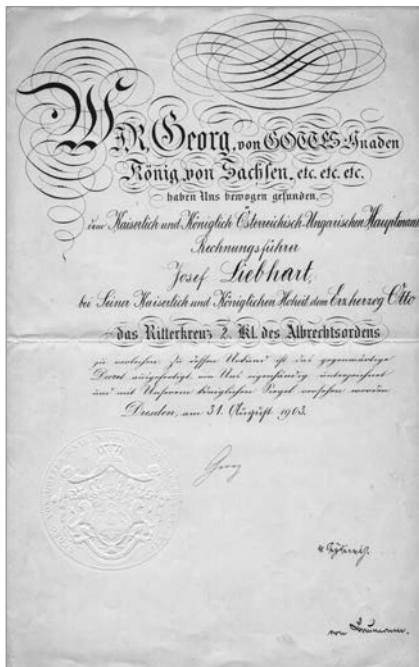 WIR, Georg, von GOTTES Gnaden
König von Sachsen, etc. etc. etc.
haben Uns bewogen gefunden,
dem Kaiserlich und Königlich Österreichisch-Ungarischen Hauptmann
Rechnungsführer
Josef Liebhart,
bei Seiner Kaiserlich und Königlichen Hoheit dem Erzherzog Otto
das Ritterkreuz 2. Kl. des Albrechtsordens
zu verleihen. Zu dessen Urkund ist das gegenwärtige
Decret ausgefertigt, von Uns eigenhändig unterzeichnet
und mit Unserem Königlichen Siegel versehen worden
Dresden, am 31. August 1903.
Georg